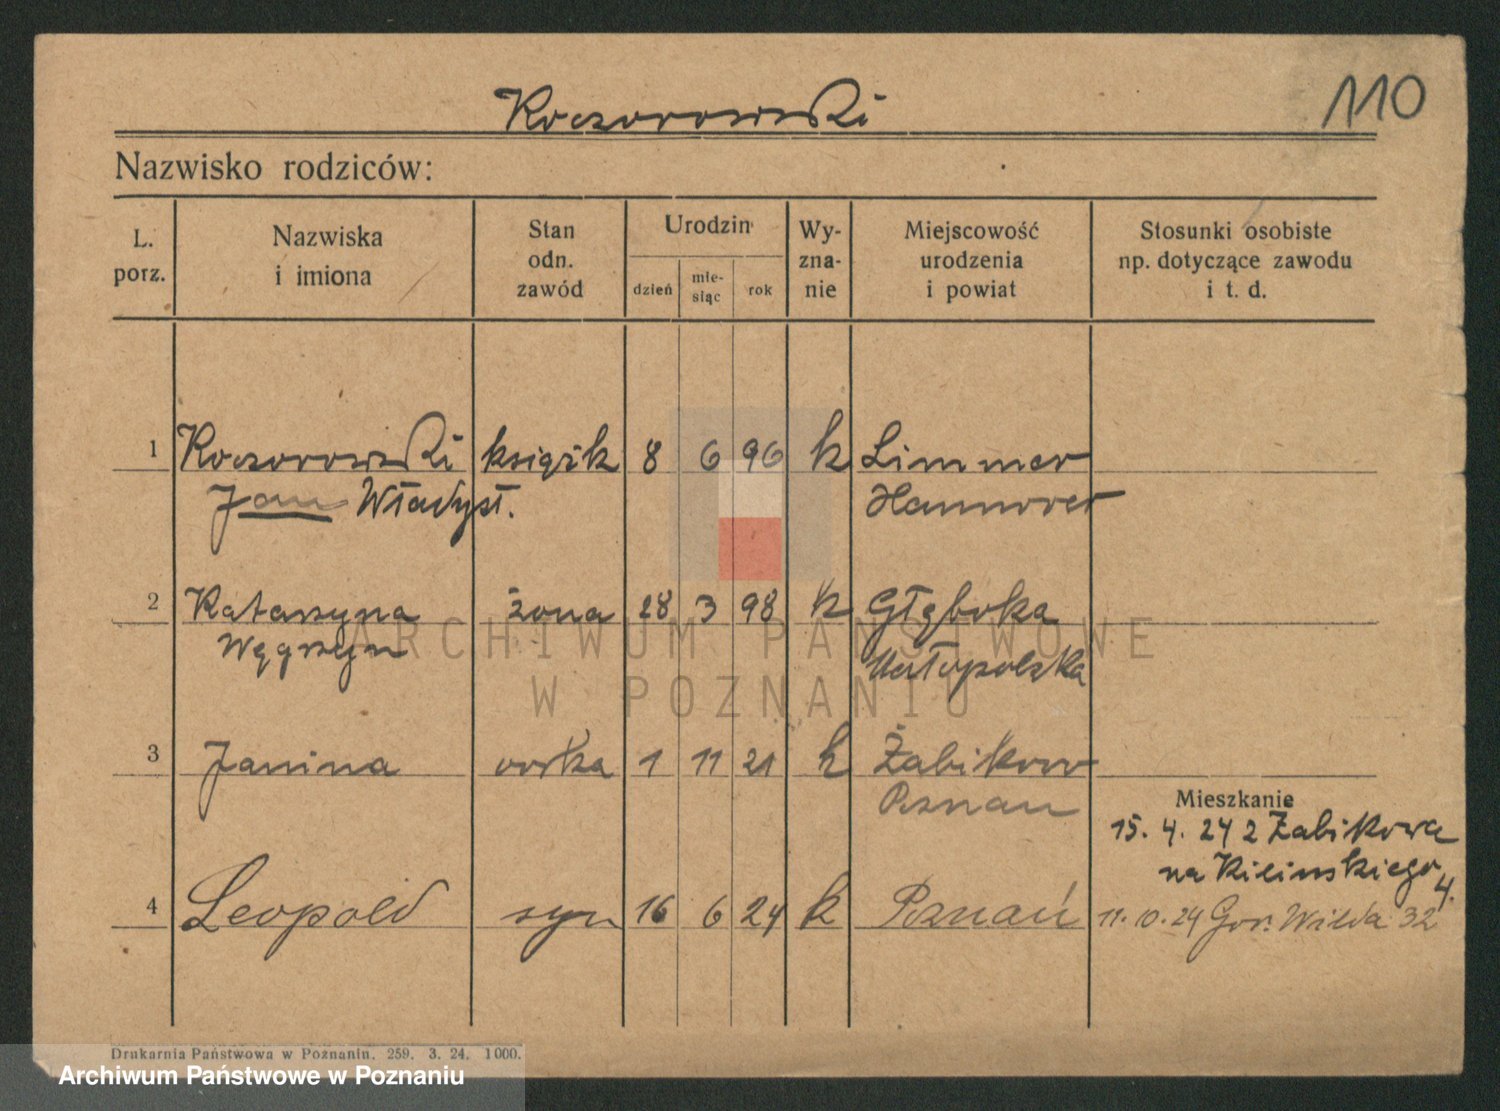 Koczorowski
110
Nazwisko rodziców:
L. porz.
Nazwiska i imiona
Stan odn. zawód
Urodzin
dzień
mie-siąc
rok
Wy-zna-nie
Miejscowość urodzenia i powiat
Stosunki osobiste np. dotyczące zawodu i t. d.
1 Koczorowski książk 8 6 96 k Limmer
Jan Władysł. Hannover
2 Katarzyna żona 28 3 98 k Głęboka
Węgrzyn Małopolska
3 Janina córka 1 11 21 k Żabikowo
Poznań
Mieszkanie
15. 4. 24 z Żabikowa
na Kilińskiego 4.
4 Leopold syn 16 6 24 k Poznań 11. 10. 24 Gór. Wilda 32
ARCHIWUM PAŃSTWOWE
W POZNANIU
Drukarnia Państwowa w Poznaniu. 259. 3. 24. 1000.
Archiwum Państwowe w Poznaniu